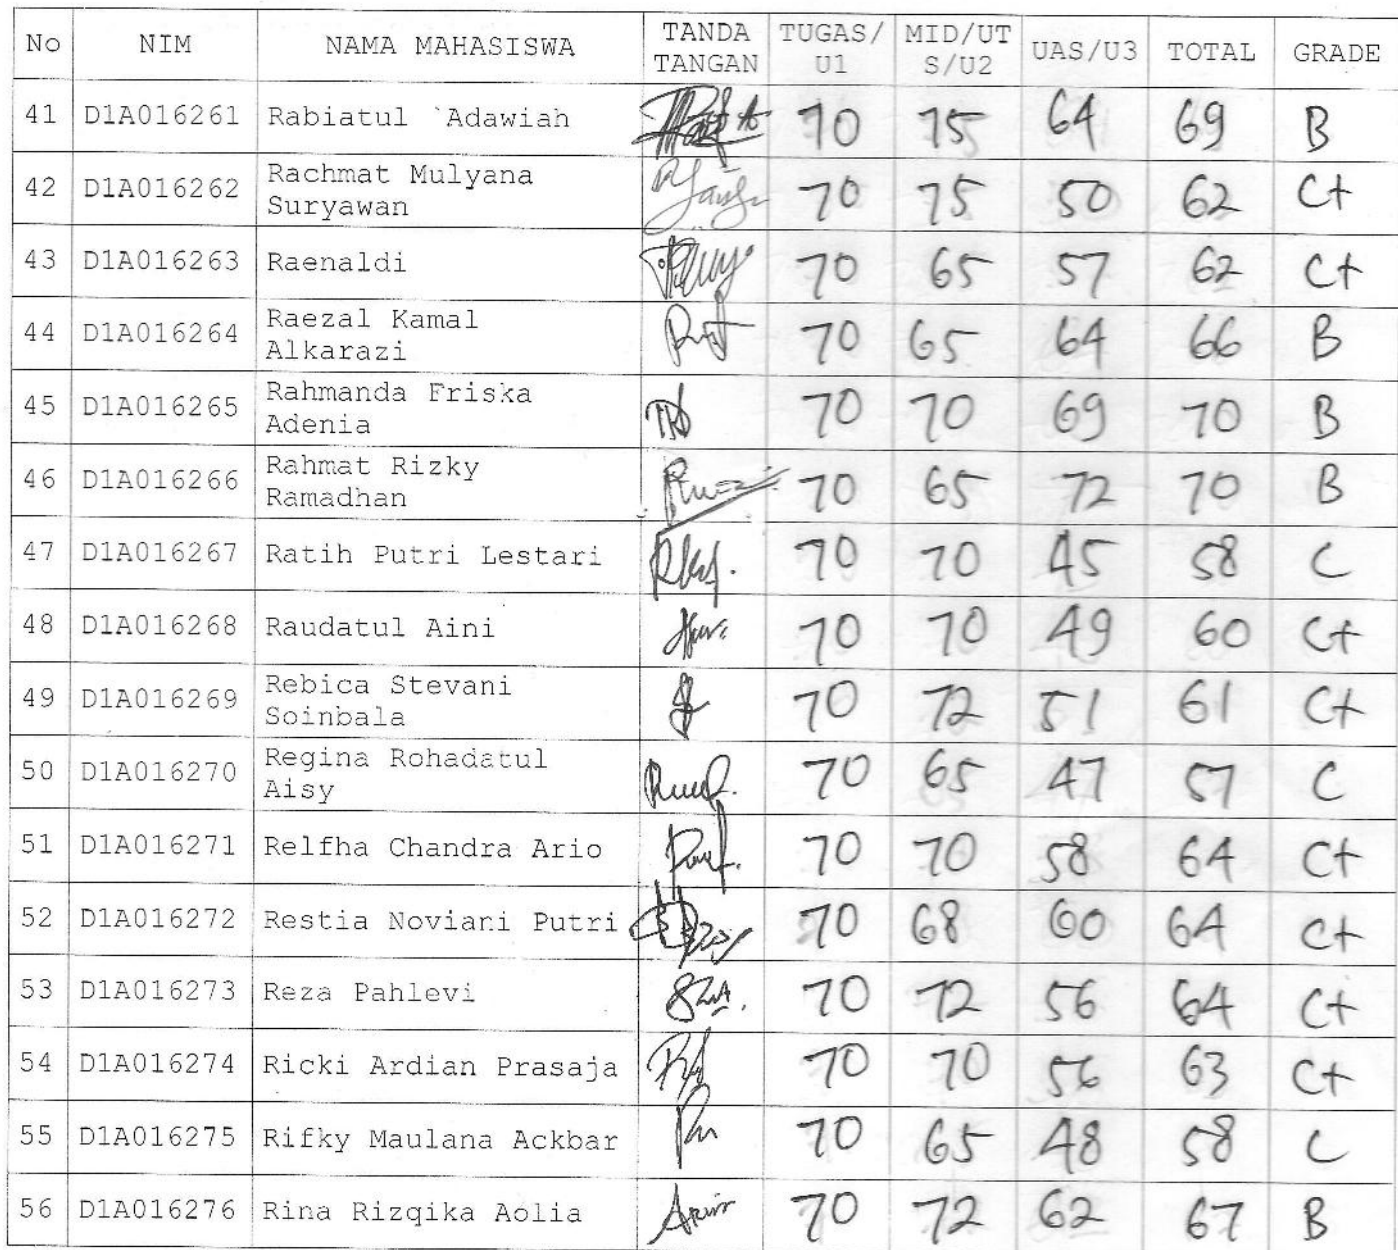 No NIM NAMA MAHASISWA TANDA TANGAN TUGAS/ U1 MID/UT S/U2 UAS/U3 TOTAL GRADE
41 D1A016261 Rabiatul `Adawiah 70 75 64 69 B
42 D1A016262 Rachmat Mulyana Suryawan 70 75 50 62 C+
43 D1A016263 Raenaldi 70 65 57 62 C+
44 D1A016264 Raezal Kamal Alkarazi 70 65 64 66 B
45 D1A016265 Rahmanda Friska Adenia 70 70 69 70 B
46 D1A016266 Rahmat Rizky Ramadhan 70 65 72 70 B
47 D1A016267 Ratih Putri Lestari 70 70 45 58 C
48 D1A016268 Raudatul Aini 70 70 49 60 C+
49 D1A016269 Rebica Stevani Soinbala 70 72 51 61 C+
50 D1A016270 Regina Rohadatul Aisy 70 65 47 57 C
51 D1A016271 Relfha Chandra Ario 70 70 58 64 C+
52 D1A016272 Restia Noviani Putri 70 68 60 64 C+
53 D1A016273 Reza Pahlevi 70 72 56 64 C+
54 D1A016274 Ricki Ardian Prasaja 70 70 56 63 C+
55 D1A016275 Rifky Maulana Ackbar 70 65 48 58 C
56 D1A016276 Rina Rizqika Aolia 70 72 62 67 B